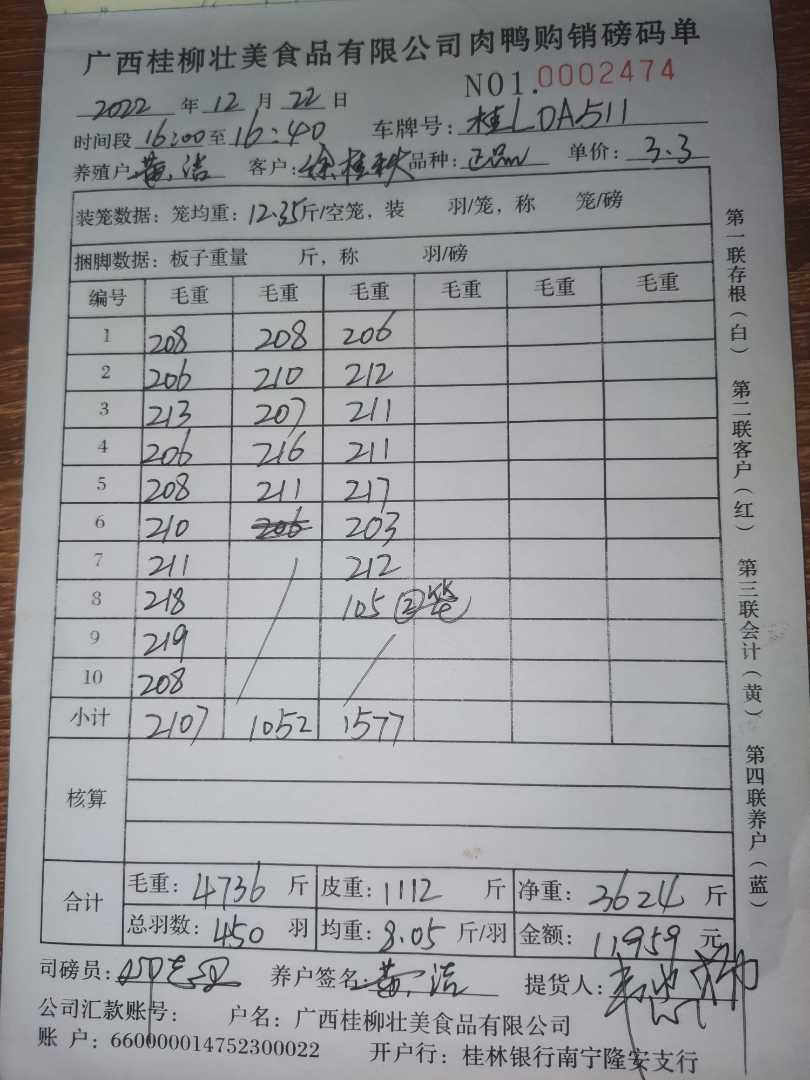 广西桂柳壮美食品有限公司肉鸭购销磅码单
NO1.0002474
2022年12月22日
时间段16:00至16:40 车牌号:桂LDA511
养殖户 黄洁 客户:徐桂秋 品种:正品 单价:3.3
装笼数据:笼均重:12.35斤/空笼,装 羽/笼,称 笼/磅
捆脚数据:板子重量 斤,称 羽/磅
编号 毛重 毛重 毛重 毛重 毛重 毛重
1 208 208 206
2 206 210 212
3 213 207 211
4 206 216 211
5 208 211 217
6 210 206 203
7 211 212
8 218 105 ②笼
9 219
10 208
小计 2107 1052 1577
核算
合计 毛重:4736斤 皮重:1112斤 净重:3624斤
总羽数:450羽 均重:8.05斤/羽 金额:11959元
司磅员: 养户签名:黄洁 提货人:
公司汇款账号: 户名:广西桂柳壮美食品有限公司
账 户:660000014752300022 开户行:桂林银行南宁隆安支行
第一联存根(白) 第二联客户(红) 第三联会计(黄) 第四联养户(蓝)